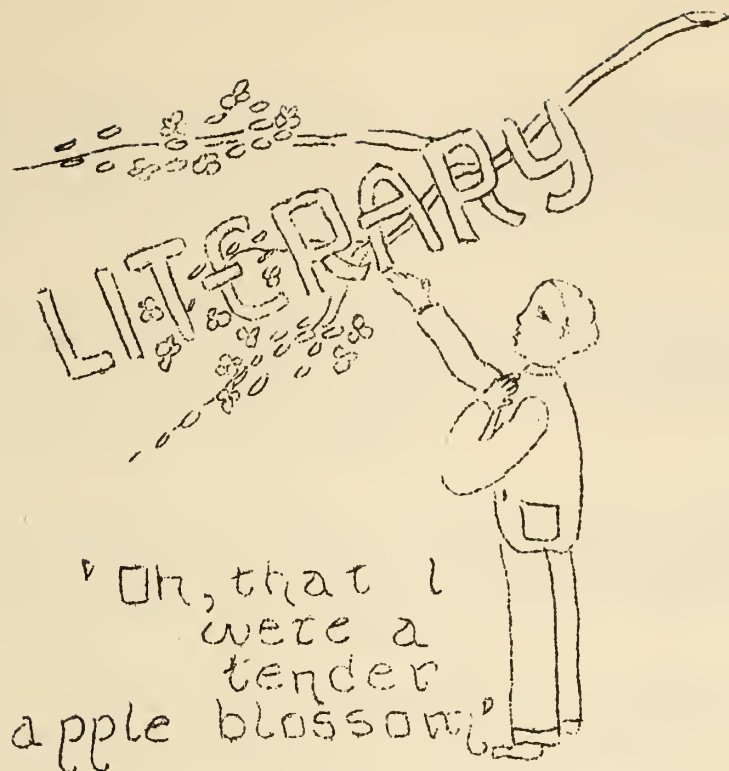 LITERARY
"Oh, that I
were a
tender
apple blossom"